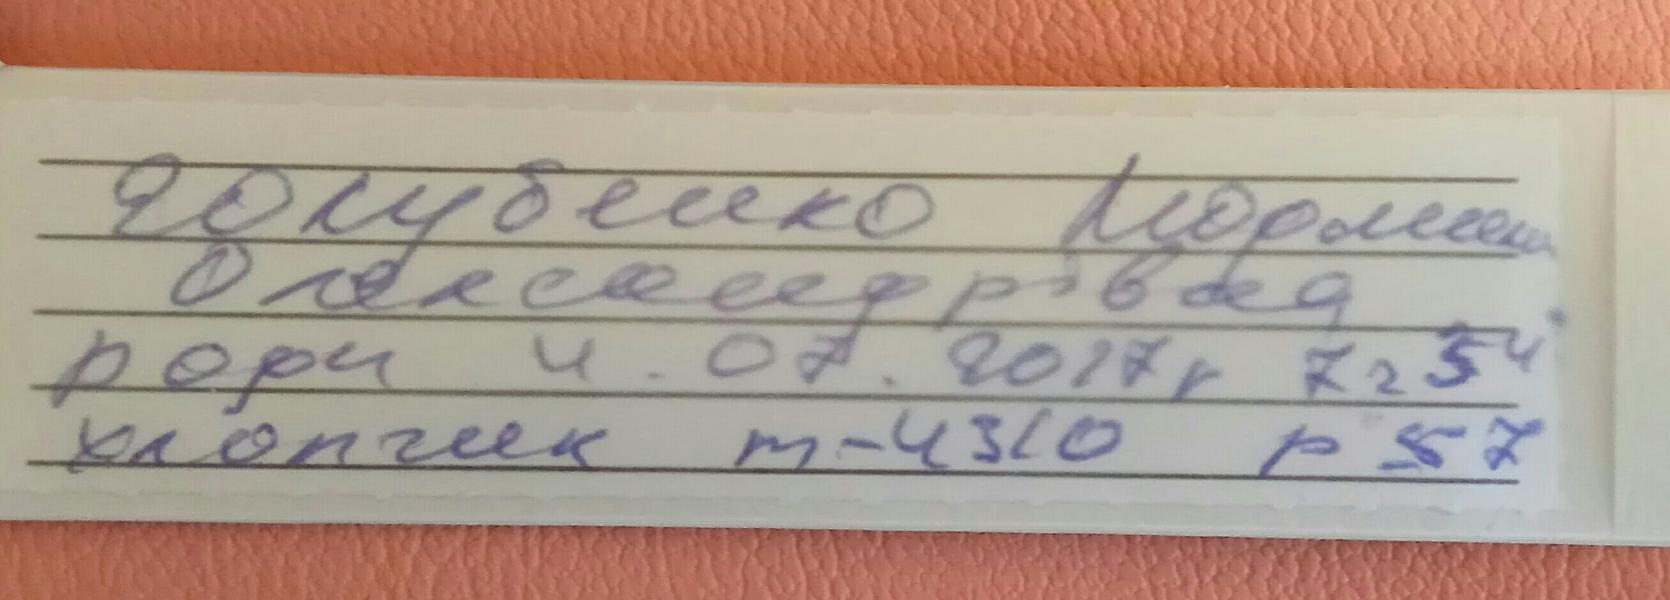 Голубенко Марина
Олександрівна
роди 4.07.2017р 7г 54
хлопчик т-4310 р 57